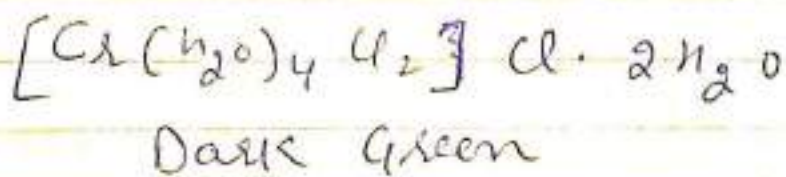 [Cr(H₂O)₄ Cl₂] Cl· 2H₂O
Dark Green